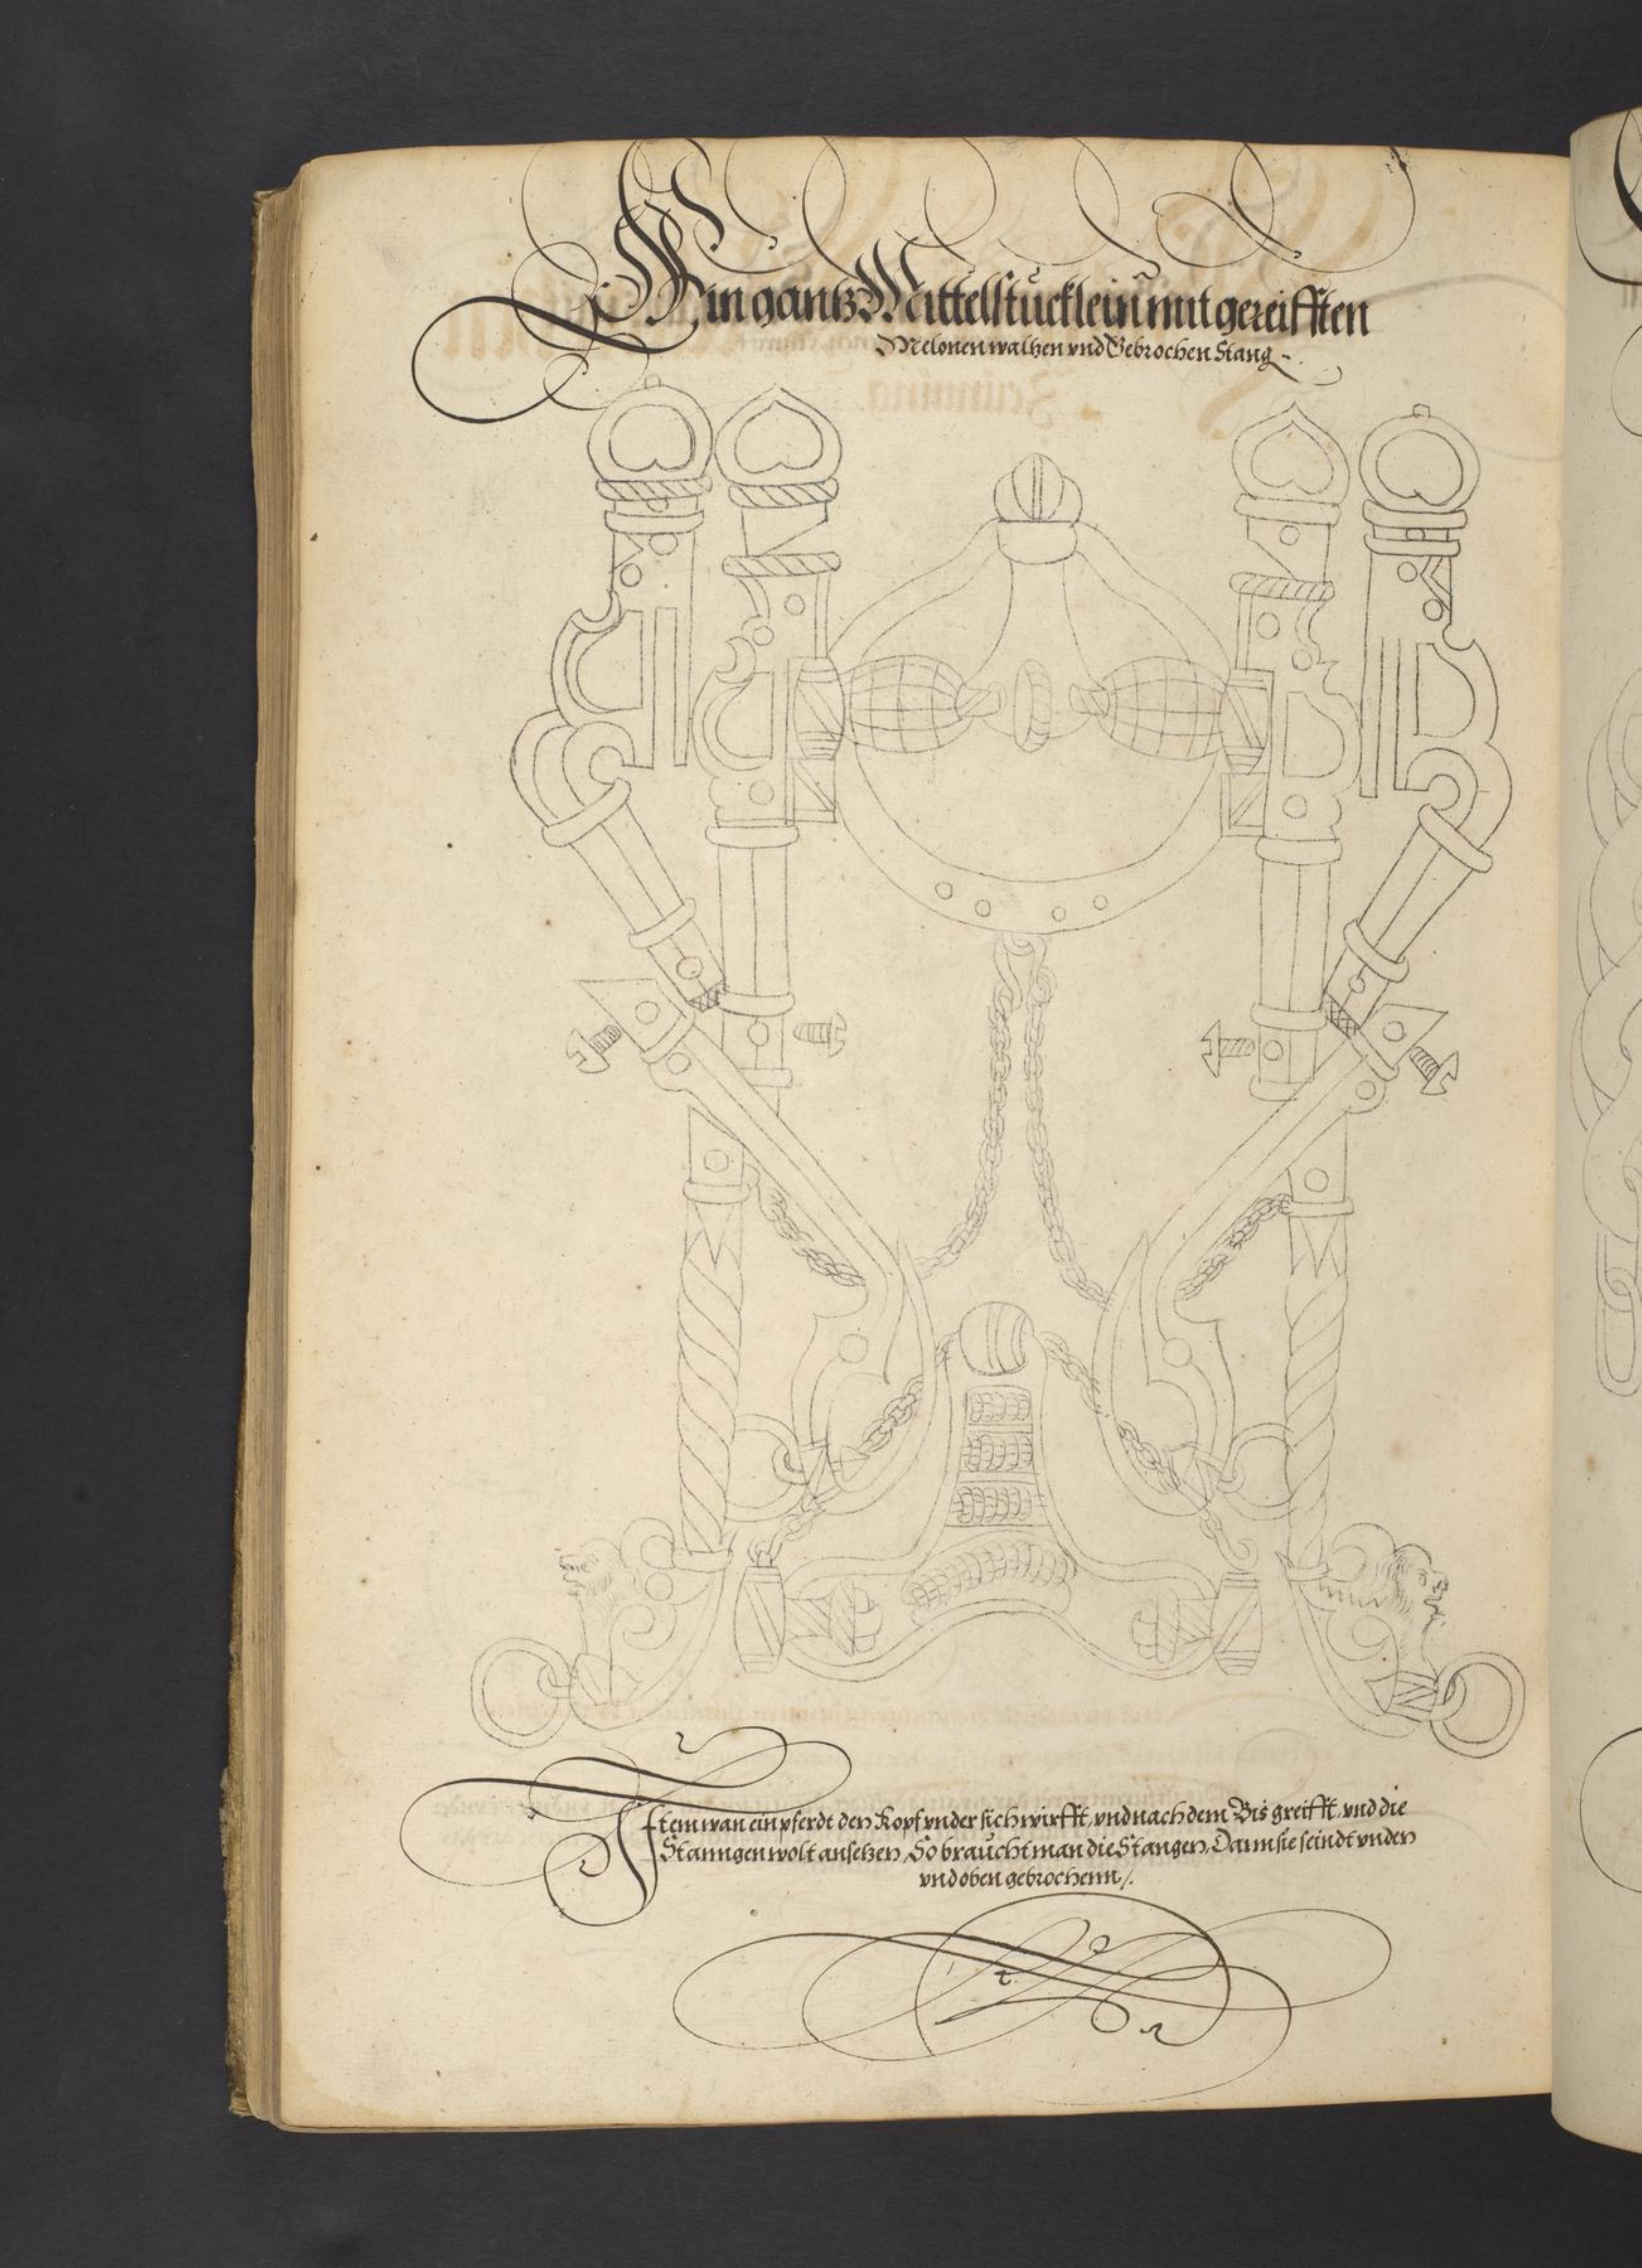 Ein gantz Mittelstücklein mit gereifften
Melonen waltzen vnd Gebrochen Stang
Item wan ein pferdt den Kopf vnder sich wirfft, vnd nach dem Bis greifft, vnd die
Stanngen wolt ansetzen, So braucht man die Stangen, Dann sie seindt vnden
vnd oben gebrochenn /.